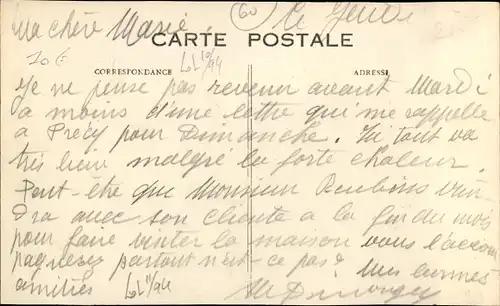 Ma chère Marie (60) le Jeudi
CARTE POSTALE
CORRESPONDANCE ADRESSE
Je ne pense pas revenir avant Mardi
a moins d'une lettre qui me rappelle
a Précy pour Dimanche. Ici tout va
très bien malgré la forte chaleur.
Peut-être que Monsieur vien-
dra avec son cliente a la fin du mois
pour faire visiter la maison vous l'accom
pagnerez partout n'est-ce pas? Mes bonnes
amitiés